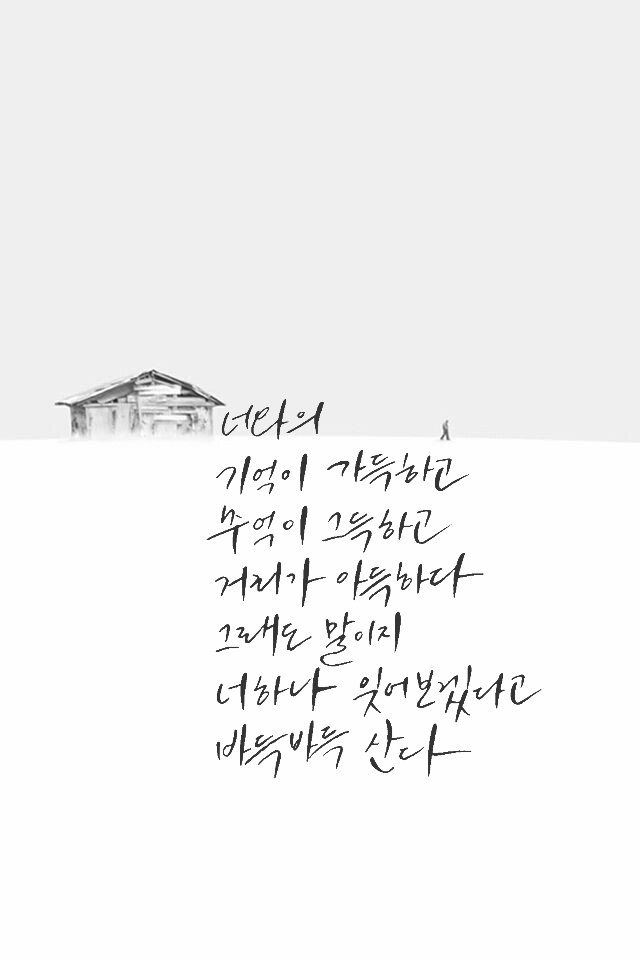 너와의
기억이 가득하고
추억이 그득하고
거리가 아득하다
그래도 말이지
너하나 잊어보겠다고
바득바득 산다